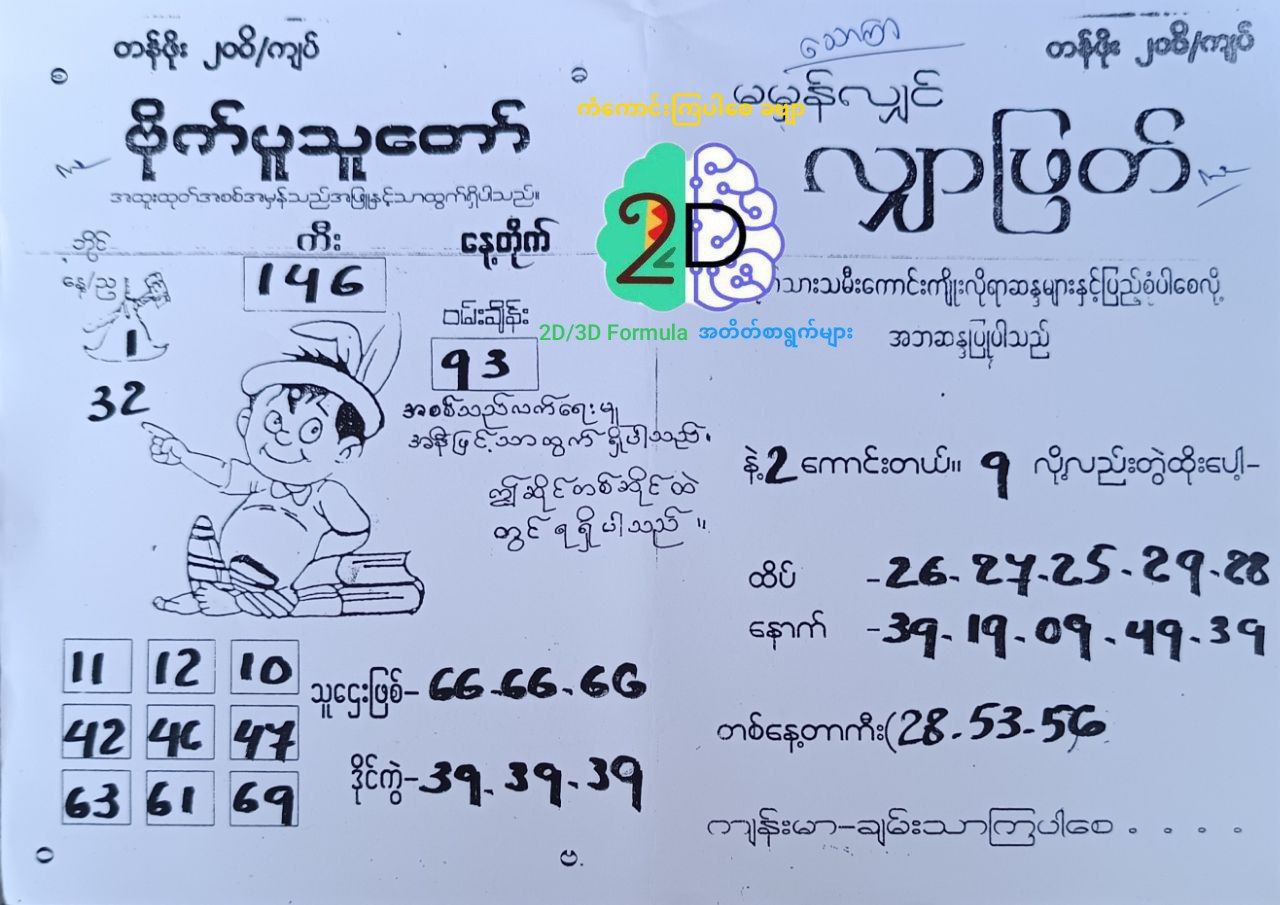 တန်ဖိုး ၂၀၀ိ/ကျပ်
၈
ဗိုက်ပူသူတော်
အထူးထုတ်အစစ်အမှန်သည်အဖြူနှင့်သာထွက်ရှိပါသည်။
ဘိုင်
နေ့/ည
1
32
ကီး
146
နေ့တိုက်
ဝမ်းချိန်း
93
အစစ်သည်လက်ရေးမူ
အနီဖြင့်သာထွက်ရှိပါသည်။
ဤဆိုင်တစ်ဆိုင်ထဲ
တွင်ရရှိပါသည်။
11 12 10
42 46 47
63 61 69
သူဌေးဖြစ်- 66-66-66
ဒိုင်ကွဲ-39-39-39
သောကြာ
တန်ဖိုး ၂၀၀ိ/ကျပ်
မမှန်လျှင်
လျှာဖြတ်
ကံကောင်းကြပါစေ ခဗျာ
2D
2D/3D Formula အတိတ်စာရွက်များ
သားသမီးကောင်းကျိုးလိုရာဆန္ဒများနှင့်ပြည့်စုံပါစေလို့
အဘဆန္ဒပြုပါသည်
နဲ့ 2 ကောင်းတယ်။ 9 လို့လည်းတွဲထိုးပေါ့-
ထိပ် -26-27-25-29-28
နောက် -39-19-09-49-39
တစ်နေ့တာကီး(28-53-56
ကျန်းမာ-ချမ်းသာကြပါစေ . . . .